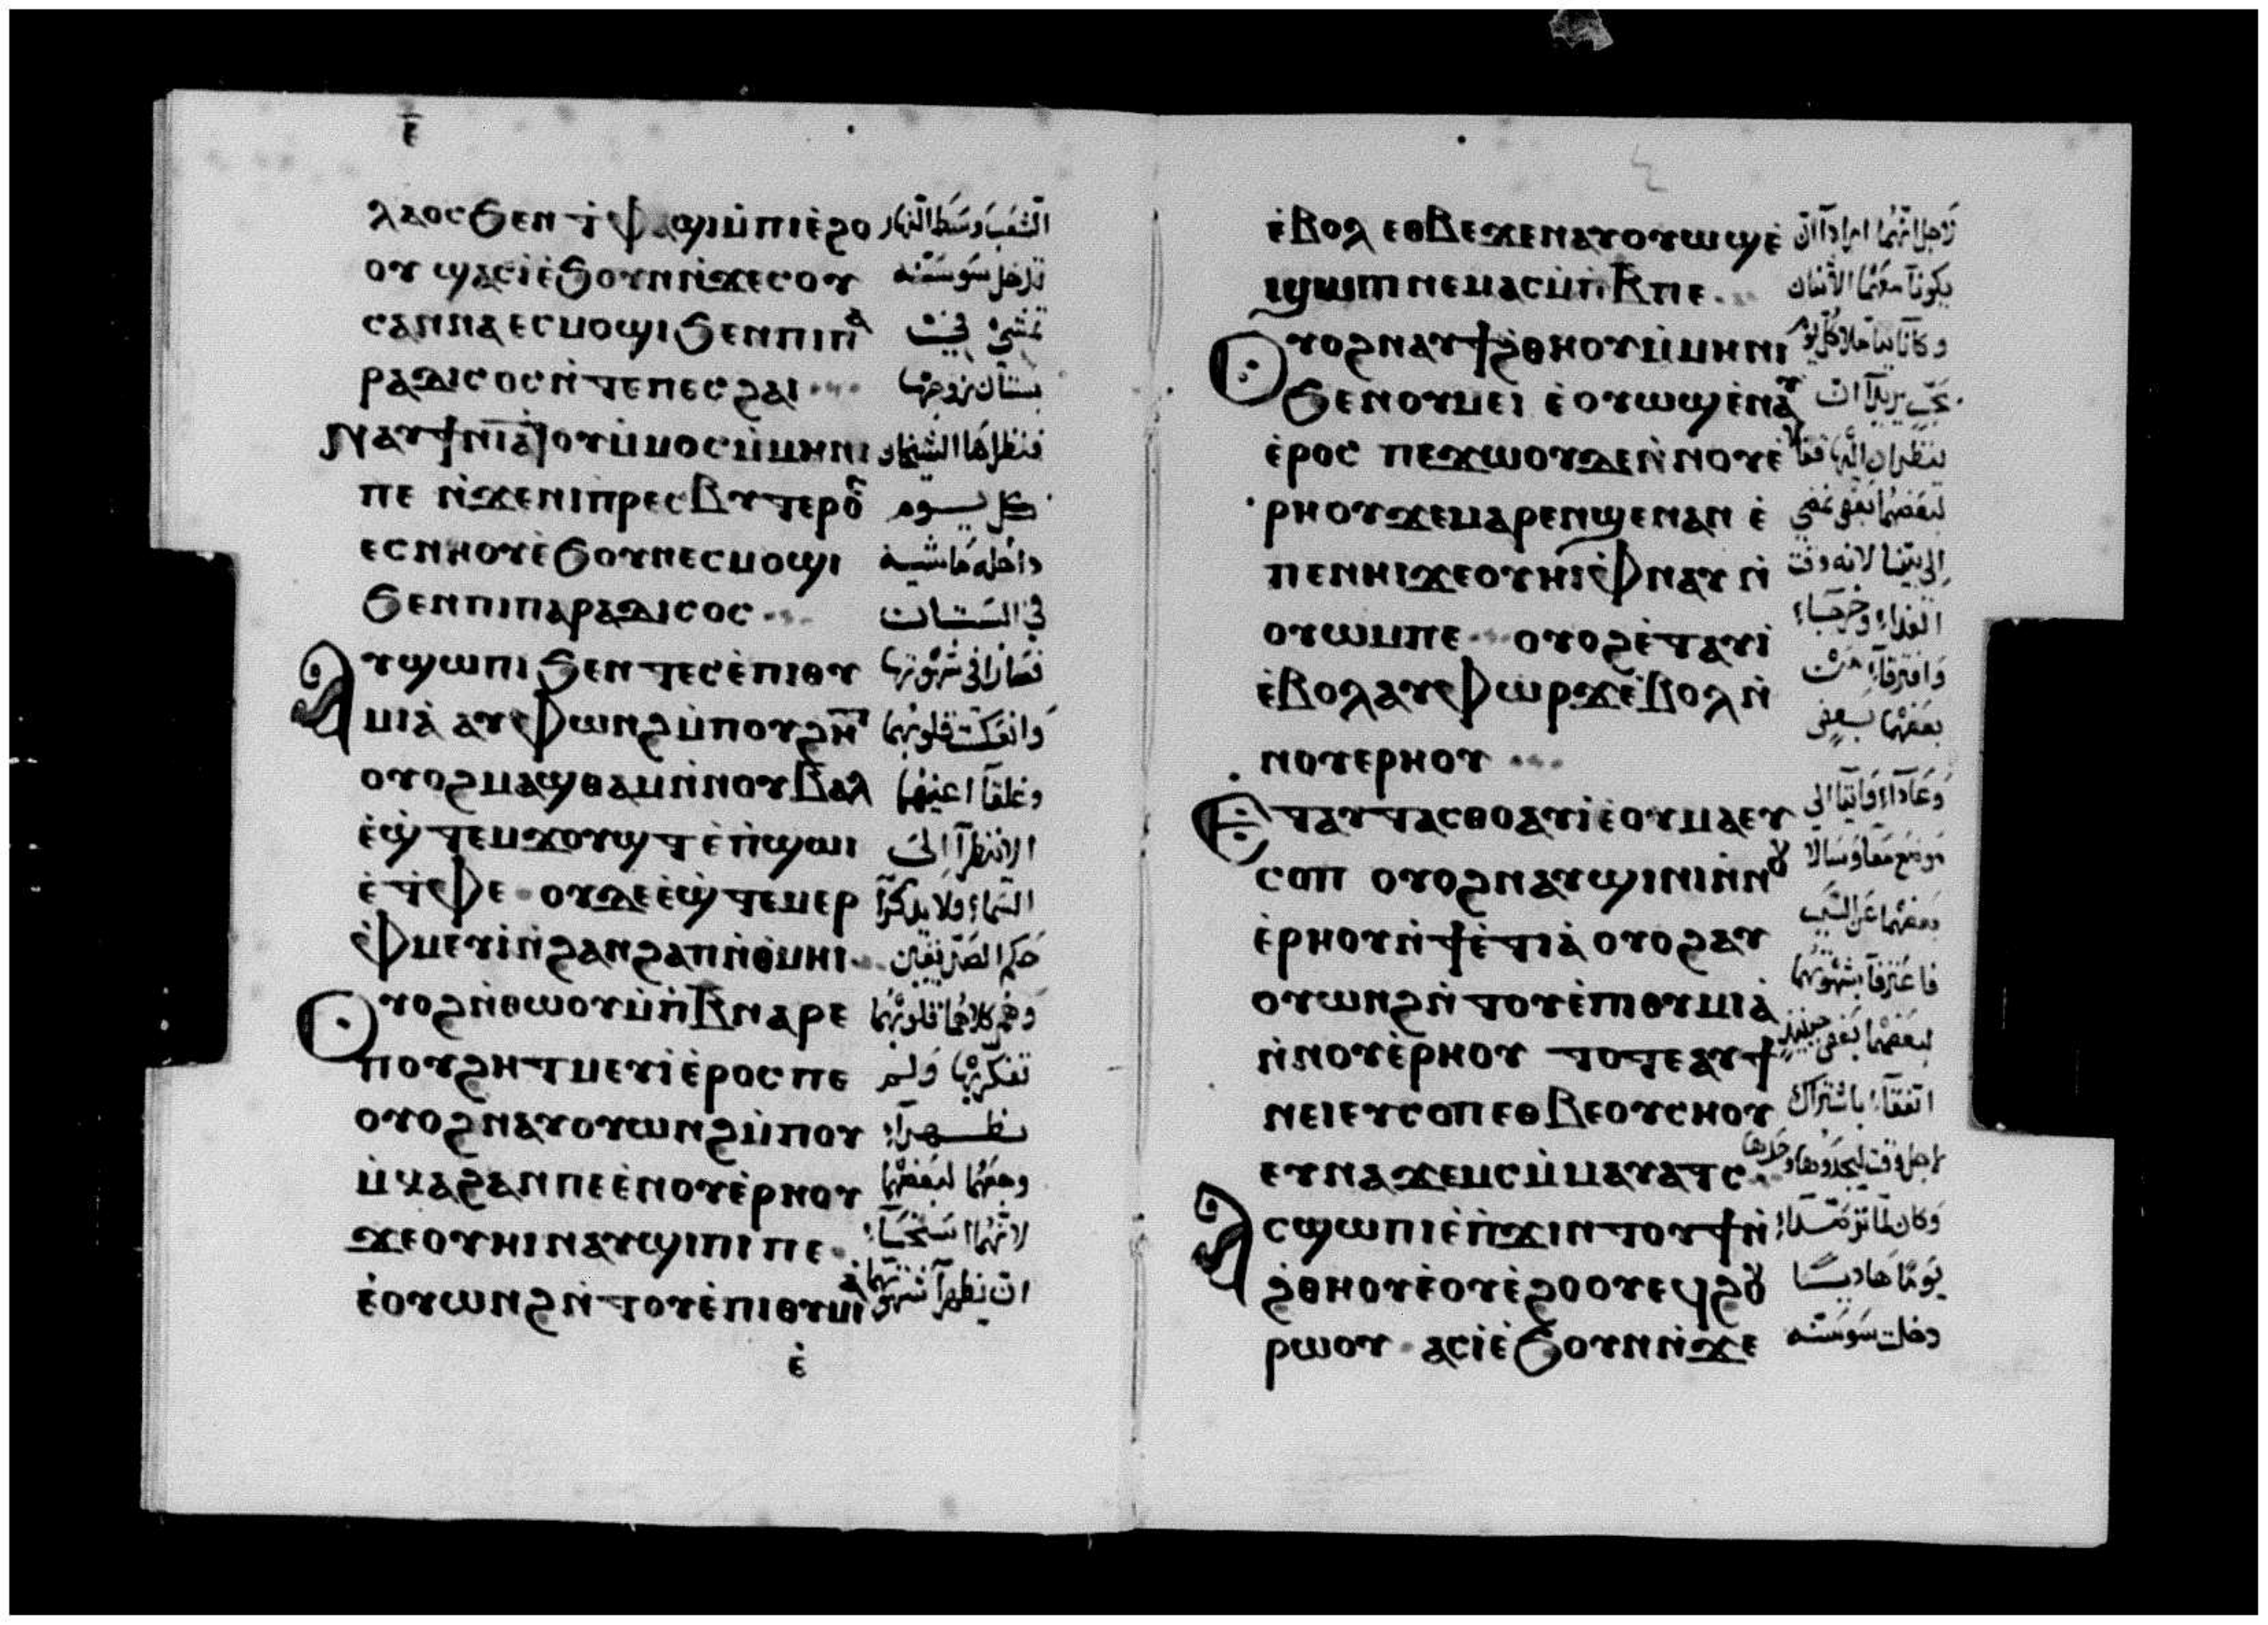 ⲉ̅
ⲗⲁⲟⲥ ϧⲉⲛ ϯⲫⲁϣⲓ ⲙ̀ⲡⲓⲉ̀ϩⲟ الشعب وسط النهار
ⲟⲩ ϣⲁⲥⲓ̀ ⲉ̀ϧⲟⲩⲛ ⲛ̀ϫⲉ ⲥⲟⲩ تدخل سوسنه
ⲥⲁⲛⲛⲁ ⲉⲥⲙⲟϣⲓ ϧⲉⲛ ⲡⲓⲡⲁ تمشي في
ⲣⲁⲇⲓⲥⲟⲥ ⲛ̀ⲧⲉ ⲡⲉⲥϩⲁⲓ بستان زوجها
ⲛⲁⲩϯⲛⲓⲁⲧⲟⲩ ⲙ̀ⲙⲟⲥ ⲙ̀ⲙⲏⲛⲓ فنظراها الشيخان
ⲡⲉ ⲛ̀ϫⲉ ⲛⲓⲡⲣⲉⲥⲃⲩⲧⲉⲣⲟⲥ كل يوم
ⲉⲥⲛⲏⲟⲩ ⲉ̀ϧⲟⲩⲛ ⲉⲥⲙⲟϣⲓ داخله ماشيه
ϧⲉⲛ ⲡⲓⲡⲁⲣⲁⲇⲓⲥⲟⲥ في البستان
ⲁⲩϣⲱⲡⲓ ϧⲉⲛ ⲧⲉⲥⲉ̀ⲡⲓⲑⲩ فصارا في شهوتها
ⲙⲓⲁ̀ ⲁⲩⲫⲱⲛϩ ⲙ̀ⲡⲟⲩϩⲏⲧ وانعكست قلوبهما
ⲟⲩⲟϩ ⲙⲁϣⲑⲁⲙ ⲛ̀ⲛⲟⲩⲃⲁⲗ وغلقا اعينهما
ⲉ̀ϣⲧⲉⲙϫⲟⲩϣⲧ ⲉ̀ⲡ̀ϣⲱⲓ الا ينظرا الى
ⲉ̀ⲧ̀ⲫⲉ ⲟⲩⲇⲉ ⲉ̀ϣ̀ⲧⲉⲙⲉⲣ السماء ولا يذكرا
ⲫ̀ⲙⲉⲩⲓ̀ ⲛ̀ϩⲁⲛϩⲁⲡ ⲛ̀ⲑⲙⲏⲓ حكم الصديقين
ⲟⲩⲟϩ ⲛ̀ⲑⲱⲟⲩ ⲙ̀ⲡ̀ⲃ ⲛⲁⲣⲉ وهم كلاهما قلوبهما
ⲡⲟⲩϩⲏⲧ ⲙⲉⲩⲓ̀ ⲉ̀ⲣⲟⲥ ⲡⲉ تفكر بها ولم
ⲟⲩⲟϩ ⲛⲁⲩⲟⲩⲱⲛϩ ⲙ̀ⲡⲟⲩ يظهرا
ⲙ̀ⲕⲁϩ ⲁⲛ ⲡⲉ ⲉ̀ⲛⲟⲩⲉ̀ⲣⲏⲟⲩ وجعهما لبعضهما
ϫⲉ ⲟⲩⲏⲓ ⲛⲁⲩϣⲓⲡⲓ ⲡⲉ لانهما استحيا
ⲉ̀ⲟⲩⲱⲛϩ ⲛ̀ⲧⲟⲩⲉ̀ⲡⲓⲑⲩⲙⲓⲁ ان يظهرا شهوتهما
ⲉ̀
ⲉ̀ⲃⲟⲗ ⲉⲑⲃⲉ ϫⲉ ⲛⲁⲩⲟⲩⲱϣ ⲉ̀ لاجل انهما ارادا ان
ϣⲱⲡ ⲛⲉⲙⲁⲥ ⲙ̀ⲡ̀ⲃ ⲡⲉ يكونا معها الاثنان
ⲟⲩⲟϩ ⲛⲁⲩϯϩ̀ⲑⲏⲟⲩ ⲙ̀ⲙⲏⲛⲓ
ϧⲉⲛ ⲟⲩⲙⲉⲓ ⲉⲟⲩⲱϣ ⲉ̀ⲛⲁⲩ
ⲉ̀ⲣⲟⲥ ⲡⲉϫⲱⲟⲩ ⲇⲉ ⲛ̀ⲛⲟⲩⲉ̀ ينظران اليها فقالا
ⲣⲏⲟⲩ ϫⲉ ⲙⲁⲣⲉⲛϣⲉⲛⲁⲛ ⲉ̀ لبعضهما بعض نمضي
ⲡⲉⲛⲏⲓ ϫⲉ ⲟⲩⲏⲓ ⲫ̀ⲛⲁⲩ ⲛ̀ الى بيتنا لانه وقت
ⲟⲩⲱⲙ ⲡⲉ ⲟⲩⲟϩ ⲉ̀ⲧⲁⲩⲓ̀ الغداء وخرجا
ⲉ̀ⲃⲟⲗ ⲁⲩⲫⲱⲣϫ ⲉ̀ⲃⲟⲗ ⲛ̀ وافترقا من
ⲛⲟⲩⲉⲣⲏⲟⲩ بعضهما بعض
ⲉⲧⲁⲩⲧⲁⲥⲑⲟ ⲁⲩⲓ̀ ⲉ̀ⲟⲩⲙⲁ ⲉⲩ وعادا واتيا الى
ⲥⲟⲡ ⲟⲩⲟϩ ⲛⲁⲩϣⲓⲛⲓ ⲛ̀ⲛⲟⲩ موضع معا وسالا
ⲉ̀ⲣⲏⲟⲩ ⲛ̀ϯⲉ̀ⲧⲓⲁ̀ ⲟⲩⲟϩ ⲁⲩ بعضهما عن السبب
ⲟⲩⲱⲛϩ ⲛ̀ⲧⲟⲩⲉ̀ⲡⲓⲑⲩⲙⲓⲁ̀ فاعترفا بشهوتهما
ⲛ̀ⲛⲟⲩⲉ̀ⲣⲏⲟⲩ ⲧⲟⲧⲉ ⲁⲩϯ لبعضهما بعض حينيذ
ⲛⲉⲓ ⲉⲩⲥⲟⲡ ⲉⲑⲃⲉ ⲟⲩⲥⲏⲟⲩ اتفقا باشتراك
ⲉⲩⲛⲁϫⲉⲙⲥ ⲙ̀ⲙⲁⲩⲁⲧⲥ لاجل وقت ليجدوها وحدها
ⲁⲥϣⲱⲡⲓ ⲉ̀ⲡ̀ϫⲓⲛⲧⲟⲩϯ ⲛ̀ وكان لما ترصدا
ϩ̀ⲑⲏⲟⲩ ⲉ̀ⲟⲩⲉ̀ϩⲟⲟⲩ ⲉϥϩⲟⲩ يوما هاديا
ⲣⲱⲟⲩ ⲁⲥⲓ̀ ⲉ̀ϧⲟⲩⲛ ⲛ̀ϫⲉ دخلت سوسنه